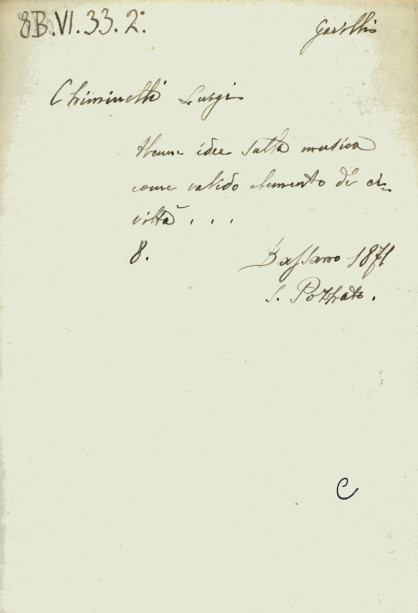 8B.VI.33.2°
Chiminelli Luigi
Alcune idee sulla musica
come valido elemento di ci-
viltà . . .
8. Bassano 1871
S. Pozzato.
C